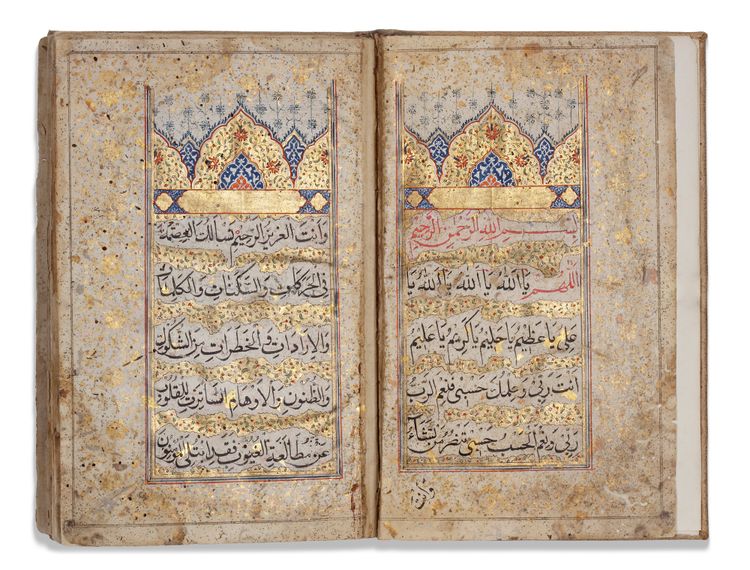 بسم الله الرحمن الرحيم
اللهم يا الله يا الله يا الله يا
علي يا عظيم يا حليم يا كريم يا عليم
انت ربي وعلمك حسبي فنعم الرب
ربي ونعم الحسب حسبي تنصر من تشاء
وانت
وانت العزيز الرحيم نسالك العصمة
في الحركات والسكنات والكلمات
والارادات والخطرات من الشكوك
والظنون والاوهام الساترة للقلوب
عن مطالعة الغيوب فقد ابتلي المؤمنون